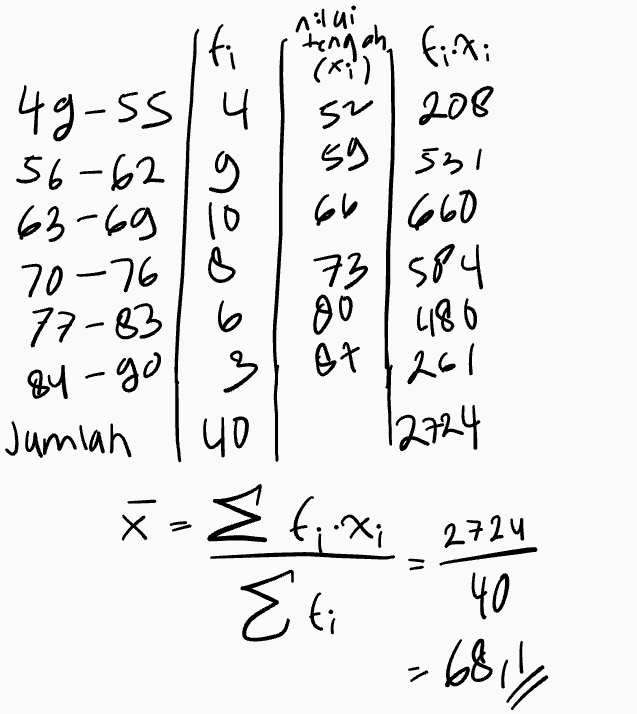 fi nilai tengah (xi) fi.xi
49-55 4 52 208
56-62 9 59 531
63-69 10 66 660
70-76 8 73 584
77-83 6 80 480
84-90 3 87 261
Jumlah 40 2724
x̄ = ∑ fi.xi / ∑ fi = 2724 / 40
= 68,1